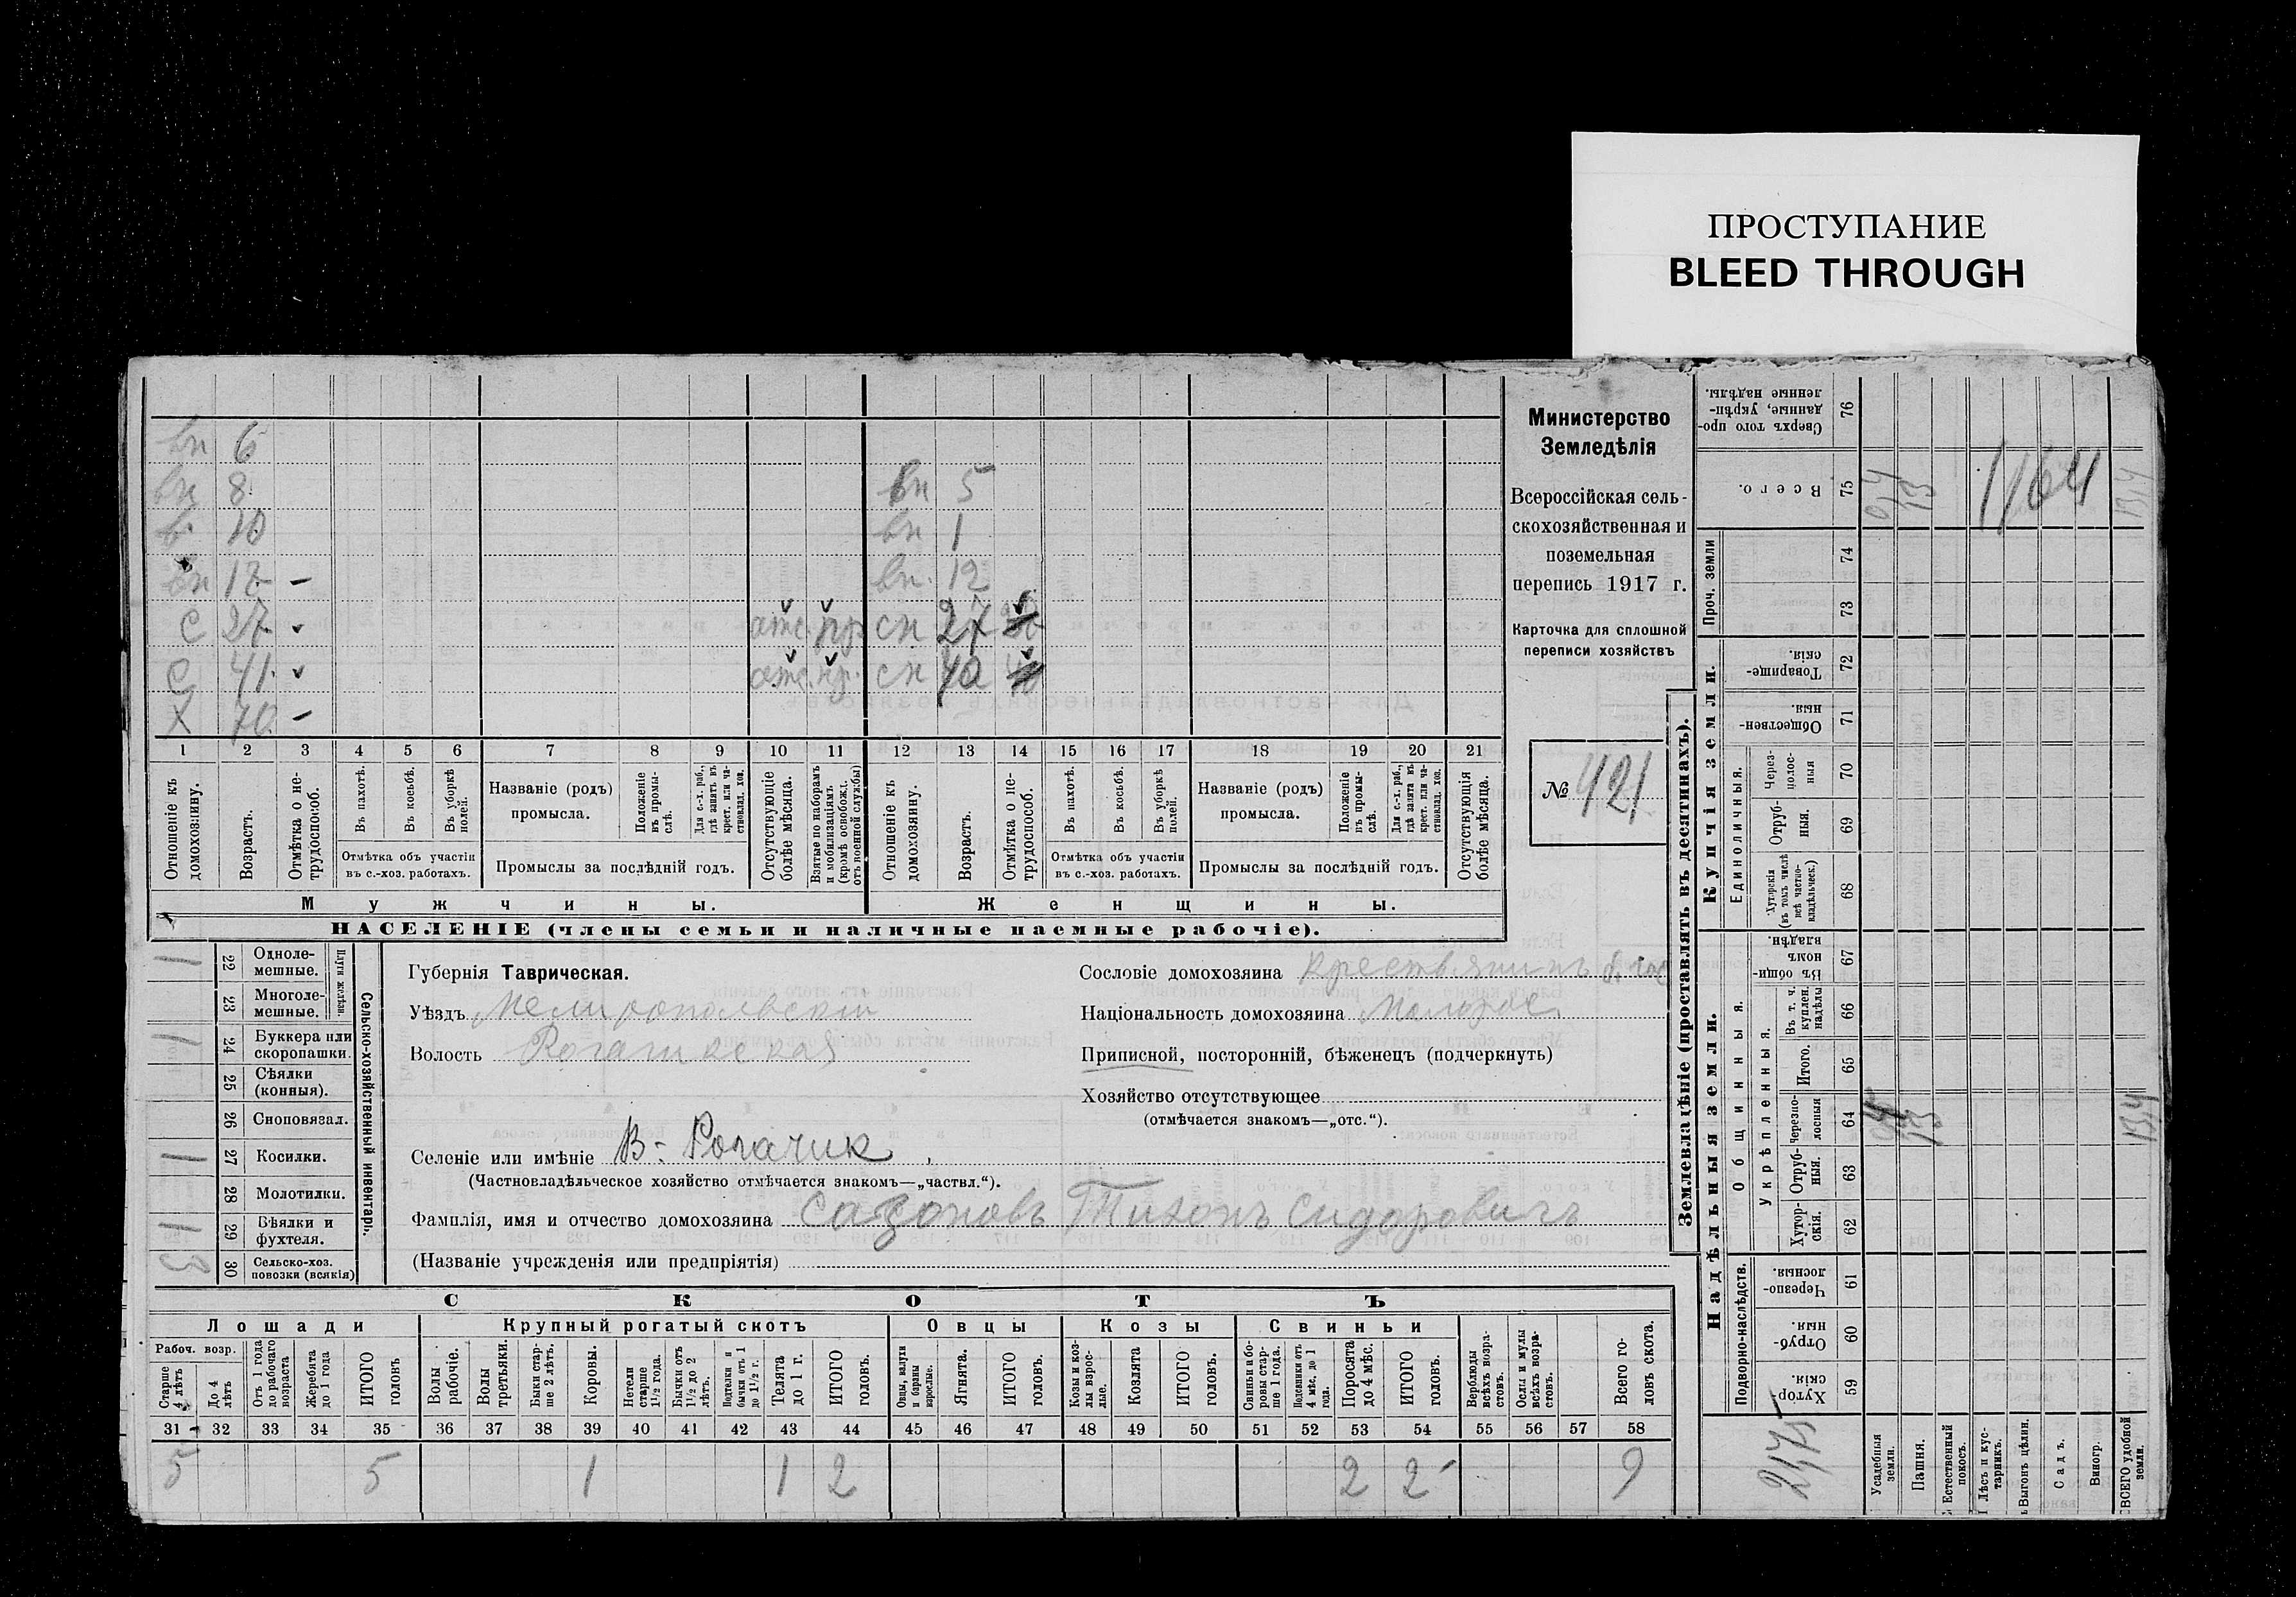 ПРОСТУПАНИЕ
BLEED THROUGH
вн 6
вн 8
в 10
вн 17 –
С 27
С 41
Х 70 –
отс. пр
отс. пр.
вн 5
вн 1
вн. 12
сн 27
сн 40
1 2 3 4 5 6 7 8 9 10 11 12 13 14 15 16 17 18 19 20 21
Отношеніе къ домохозяину.
Возрастъ.
Отмѣтка о не-трудоспособ.
Въ пахотѣ.
Въ косьбѣ.
Въ уборкѣ полей.
Отмѣтка объ участіи въ с.-хоз. работахъ.
Названіе (родъ) промысла.
Положеніе въ промы-слѣ.
Для с.-х. раб., гдѣ занятъ въ крест. или ча-стновлад. хоз.
Промыслы за послѣдній годъ.
Отсутствующіе болѣе мѣсяца.
Взятые по наборамъ и мобилизаціямъ (кромѣ освобожд. отъ военной службы)
Отношеніе къ домохозяину.
Возрастъ.
Отмѣтка о не-трудоспособ.
Въ пахотѣ.
Въ косьбѣ.
Въ уборкѣ полей.
Отмѣтка объ участіи въ с.-хоз. работахъ.
Названіе (родъ) промысла.
Положеніе въ промы-слѣ.
Для с.-х. раб., гдѣ занята въ крест. или ча-стновлад. хоз.
Промыслы за послѣдній годъ.
Отсутствующія болѣе мѣсяца.
Мужчины.
Женщины.
НАСЕЛЕНІЕ (члены семьи и наличные наемные рабочіе).
Министерство
Земледѣлія
Всероссійская сель-
скохозяйственная и
поземельная
перепись 1917 г.
Карточка для сплошной
переписи хозяйствъ
№ 421
1 22 Одноле-мешные.
23 Многоле-мешные.
Плуги желѣзн.
1 24 Буккера или скоропашки.
25 Сѣялки (конныя).
26 Сноповязал.
1 27 Косилки.
28 Молотилки.
1 29 Вѣялки и фухтеля.
3 30 Сельско-хоз. повозки (всякія)
Сельско-хозяйственный инвентарь.
Губернія Таврическая.
Уѣздъ Мелитопольскій
Волость Рогачикская
Селеніе или имѣніе В-Рогачик
(Частновладѣльческое хозяйство отмѣчается знакомъ—„частвл.“).
Фамилія, имя и отчество домохозяина Сазоновъ Тихонъ Сидоровичъ
(Названіе учрежденія или предпріятія)
Сословіе домохозяина крестьянинъ б. гос
Національность домохозяина Малорос.
Приписной, посторонній, бѣженецъ (подчеркнуть)
Хозяйство отсутствующее
(отмѣчается знакомъ—„отс.“).
СКОТЪ
Лошади
Крупный рогатый скотъ
Овцы
Козы
Свиньи
Рабоч. возр.
Старше 4 лѣтъ
До 4 лѣтъ
Отъ 1 года до рабочаго возраста
Жеребята до 1 года
ИТОГО головъ
Волы рабочіе.
Волы третьяки.
Быки стар-ше 2 лѣтъ.
Коровы.
Нетели старше 1½ года.
Бычки отъ 1½ до 2 лѣтъ.
Подтелки и бычки отъ 1 до 1½ г.
Телята до 1 г.
ИТОГО головъ.
Овцы, валухи и бараны взрослые.
Ягнята.
ИТОГО головъ.
Козы и коз-лы взрос-лые.
Козлята
ИТОГО головъ.
Свиньи и бо-ровы стар-ше 1 года.
Подсвинки отъ 4 мѣс. до 1 года.
Поросята до 4 мѣс.
ИТОГО головъ.
Верблюды всѣхъ возра-стовъ.
Ослы и мулы всѣхъ возра-стовъ.
Всего го-ловъ скота.
31 32 33 34 35 36 37 38 39 40 41 42 43 44 45 46 47 48 49 50 51 52 53 54 55 56 57 58
5 5 1 1 2 2 2 9
Землевладѣніе (проставлять въ десятинахъ).
Надѣльныя земли.
Купчія земли.
Проч. земли
Сверхъ того про-данные, укрѣп-ленные надѣлы. 76
Всего. 75
74
73
Товарище-скія. 72
Обществен-ныя. 71
Единоличныя.
Через-полос-ныя 70
Отруб-ныя. 69
Хуторскія (въ томъ числѣ всѣ частно-владѣльческ.) 68
Общинныя.
Въ общин-номъ владѣн. 67
Укрѣпленныя.
Въ т. ч. куплен. надѣлы 66
Итого. 65
Черезпо-лосныя 64
Отруб-ныя. 63
Хутор-скія. 62
Подворно-наслѣдств.
Черезпо-лосныя. 61
Отруб-ныя. 60
Хутор-скія. 59
0,4
13
1164
13,4
13
13,4
Усадебныя земли.
Пашня.
Естественный покосъ.
Лѣсъ и кус-тарникъ.
Выгонъ цѣлин.
Садъ.
Виногр.
ВСЕГО удобной земли.